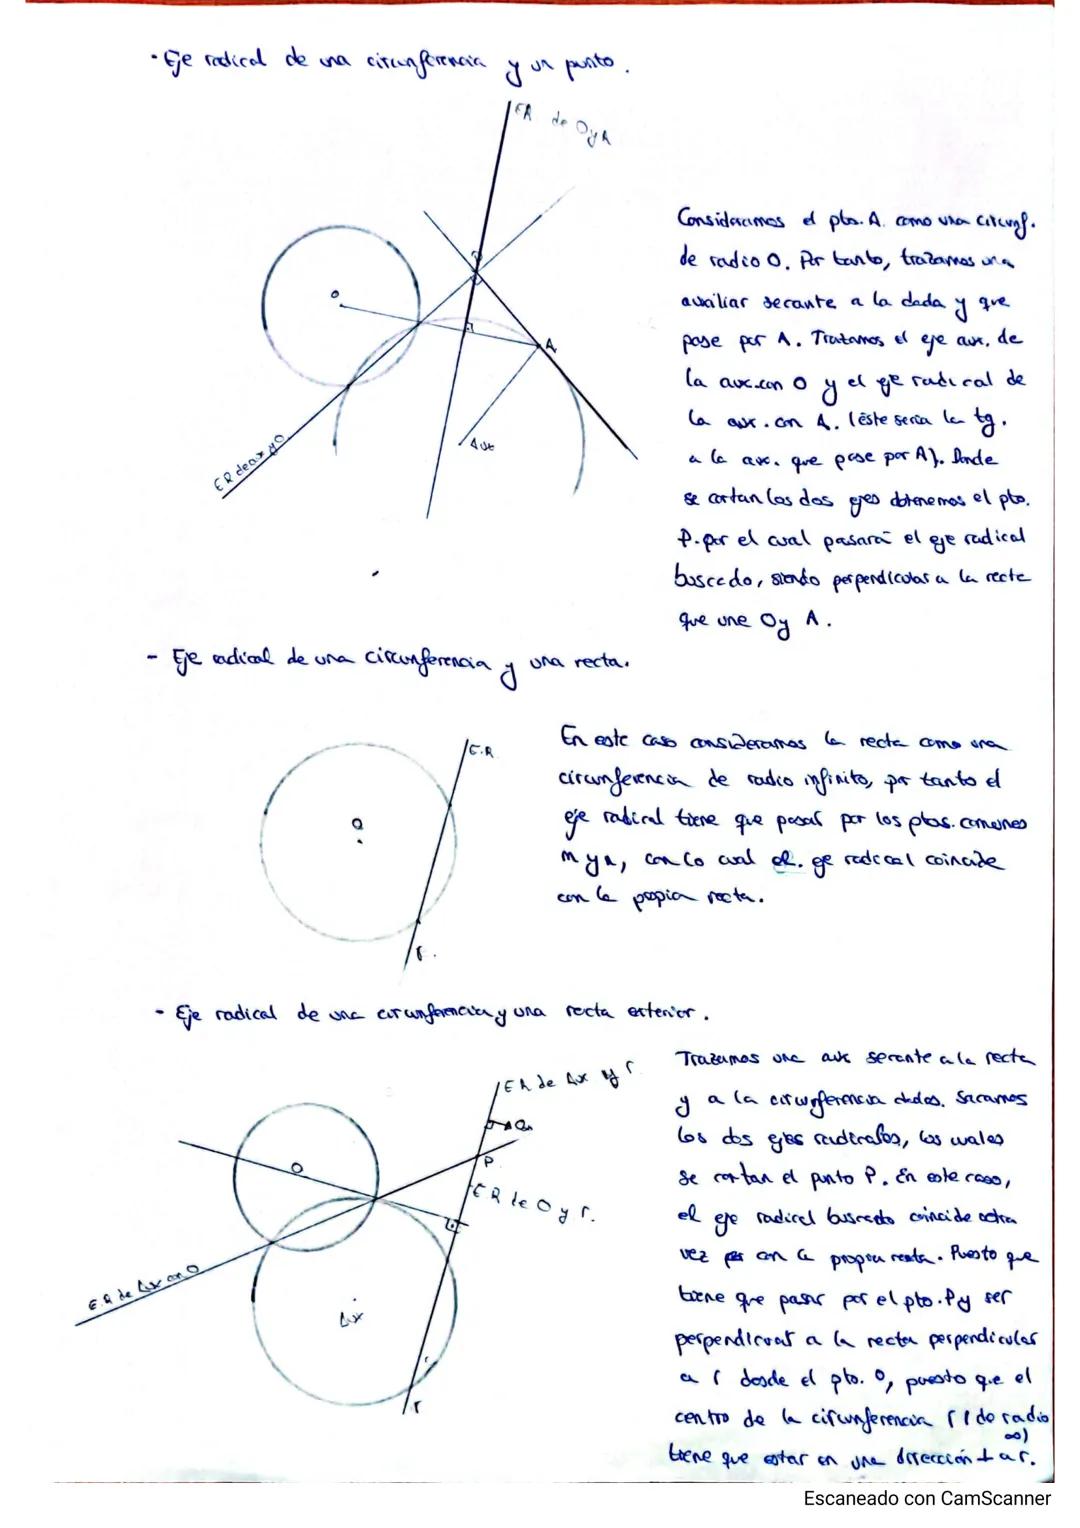 · Eje radical de una circunferencia y un punto.
ER de O y A
O
A
Aux
ER de aux y O
Consideramos el pto. A. como una circunf.
de radio O. Por tanto, trazamos una
auxiliar secante a la dada y que
pase por A. Tratamos el eje aux. de
la aux. con O y el eje radical de
la aux. con A. (éste sería la tg.
a la aux. que pase por A). Donde
se cortan los dos ejes obtenemos el pto.
P. por el cual pasará el eje radical
buscado, siendo perpendicular a la recta
que une O y A.
- Eje radical de una circunferencia y una recta.
O
E.R
r.
En este caso consideramos la recta como una
circunferencia de radio infinito, por tanto el
eje radical tiene que pasar por los ptos. comunes
m y n, con lo cual el. eje radical coincide
con la propia recta.
- Eje radical de una circunferencia y una recta exterior.
ER de Aux y r
O
P
ER de O y r.
E.R de Aux con O
Aux
r
Trazamos una aux secante a la recta
y a la circunferencia dadas. Sacamos
los dos ejes radicales, los cuales
se cortan el punto P. En este caso,
el eje radical buscado coincide otra
vez con la propia recta. Puesto que
tiene que pasar por el pto. P y ser
perpendicular a la recta perpendicular
a r desde el pto. O, puesto que el
centro de la circunferencia r (de radio
∞)
tiene que estar en una dirección ⊥ a r.
Escaneado con CamScanner